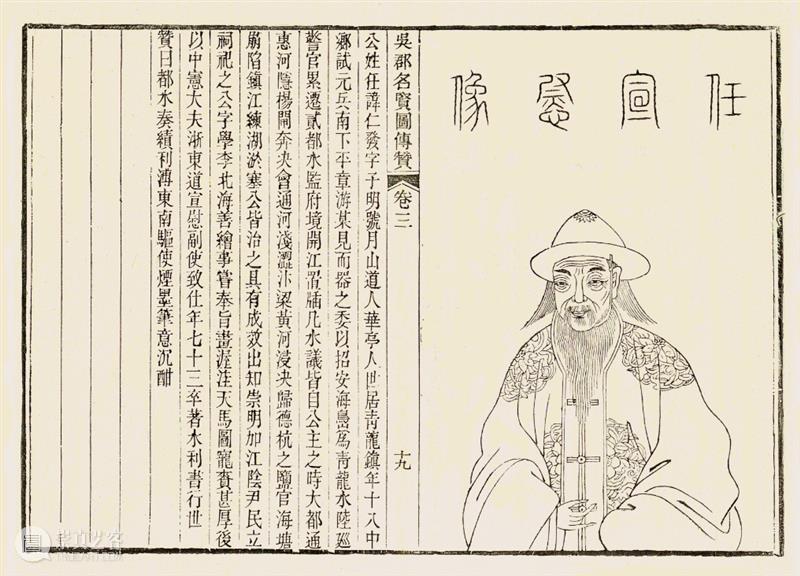 任宣慰像
吳郡名賢圖傳贊
卷三
十九
公姓任諱仁發字子明號月山道人華亭人世居青龍鎮年十八中
鄉試元兵南下平章游某見而器之委以招安海島爲青龍水陸巡
警官累遷貳都水監府境開江置牐凡水議皆自公主之時大都通
惠河隱楊閘奔決會通河淺澀汴梁黃河浸決歸德杭之鹽官海塘
崩陷鎮江練湖淤塞公皆治之具有成效出知崇明加江陰尹民立
祠祀之公字學李北海善繪事嘗奉旨畫渥洼天馬圖寵賚甚厚後
以中憲大夫浙東道宣慰副使致仕年七十三卒著水利書行世
贊曰都水奏績利溥東南驅使煙墨筆意沉酣